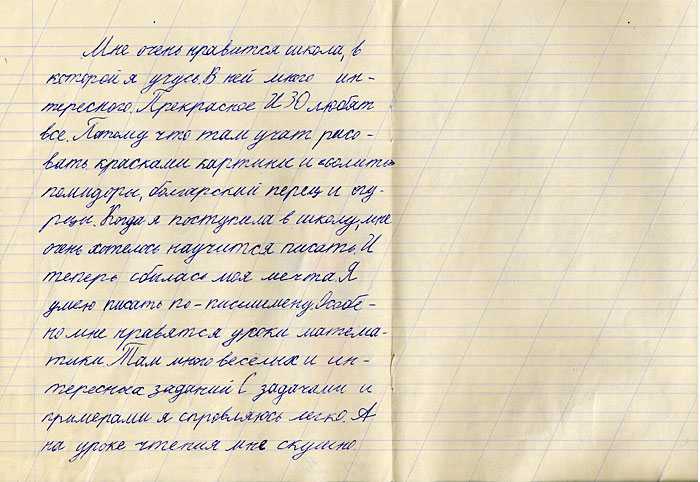 Мне очень нравится школа, в
которой я учусь. В ней много ин-
тересного. Прекрасное ИЗО любят
все. Потому что там учат рисо-
вать красками картины и «солить»
помидоры, болгарский перец и огу-
рцы. Когда я поступала в школу, мне
очень хотелось научится писать. И
теперь сбылась моя мечта. Я
умею писать по-письмиmену. Особе-
но мне нравятся уроки математи-
тики. Там много веселых и ин-
тересных заданий. С задачами и
примерами я спровляюсь легко. А
на уроке чтения мне скушно.